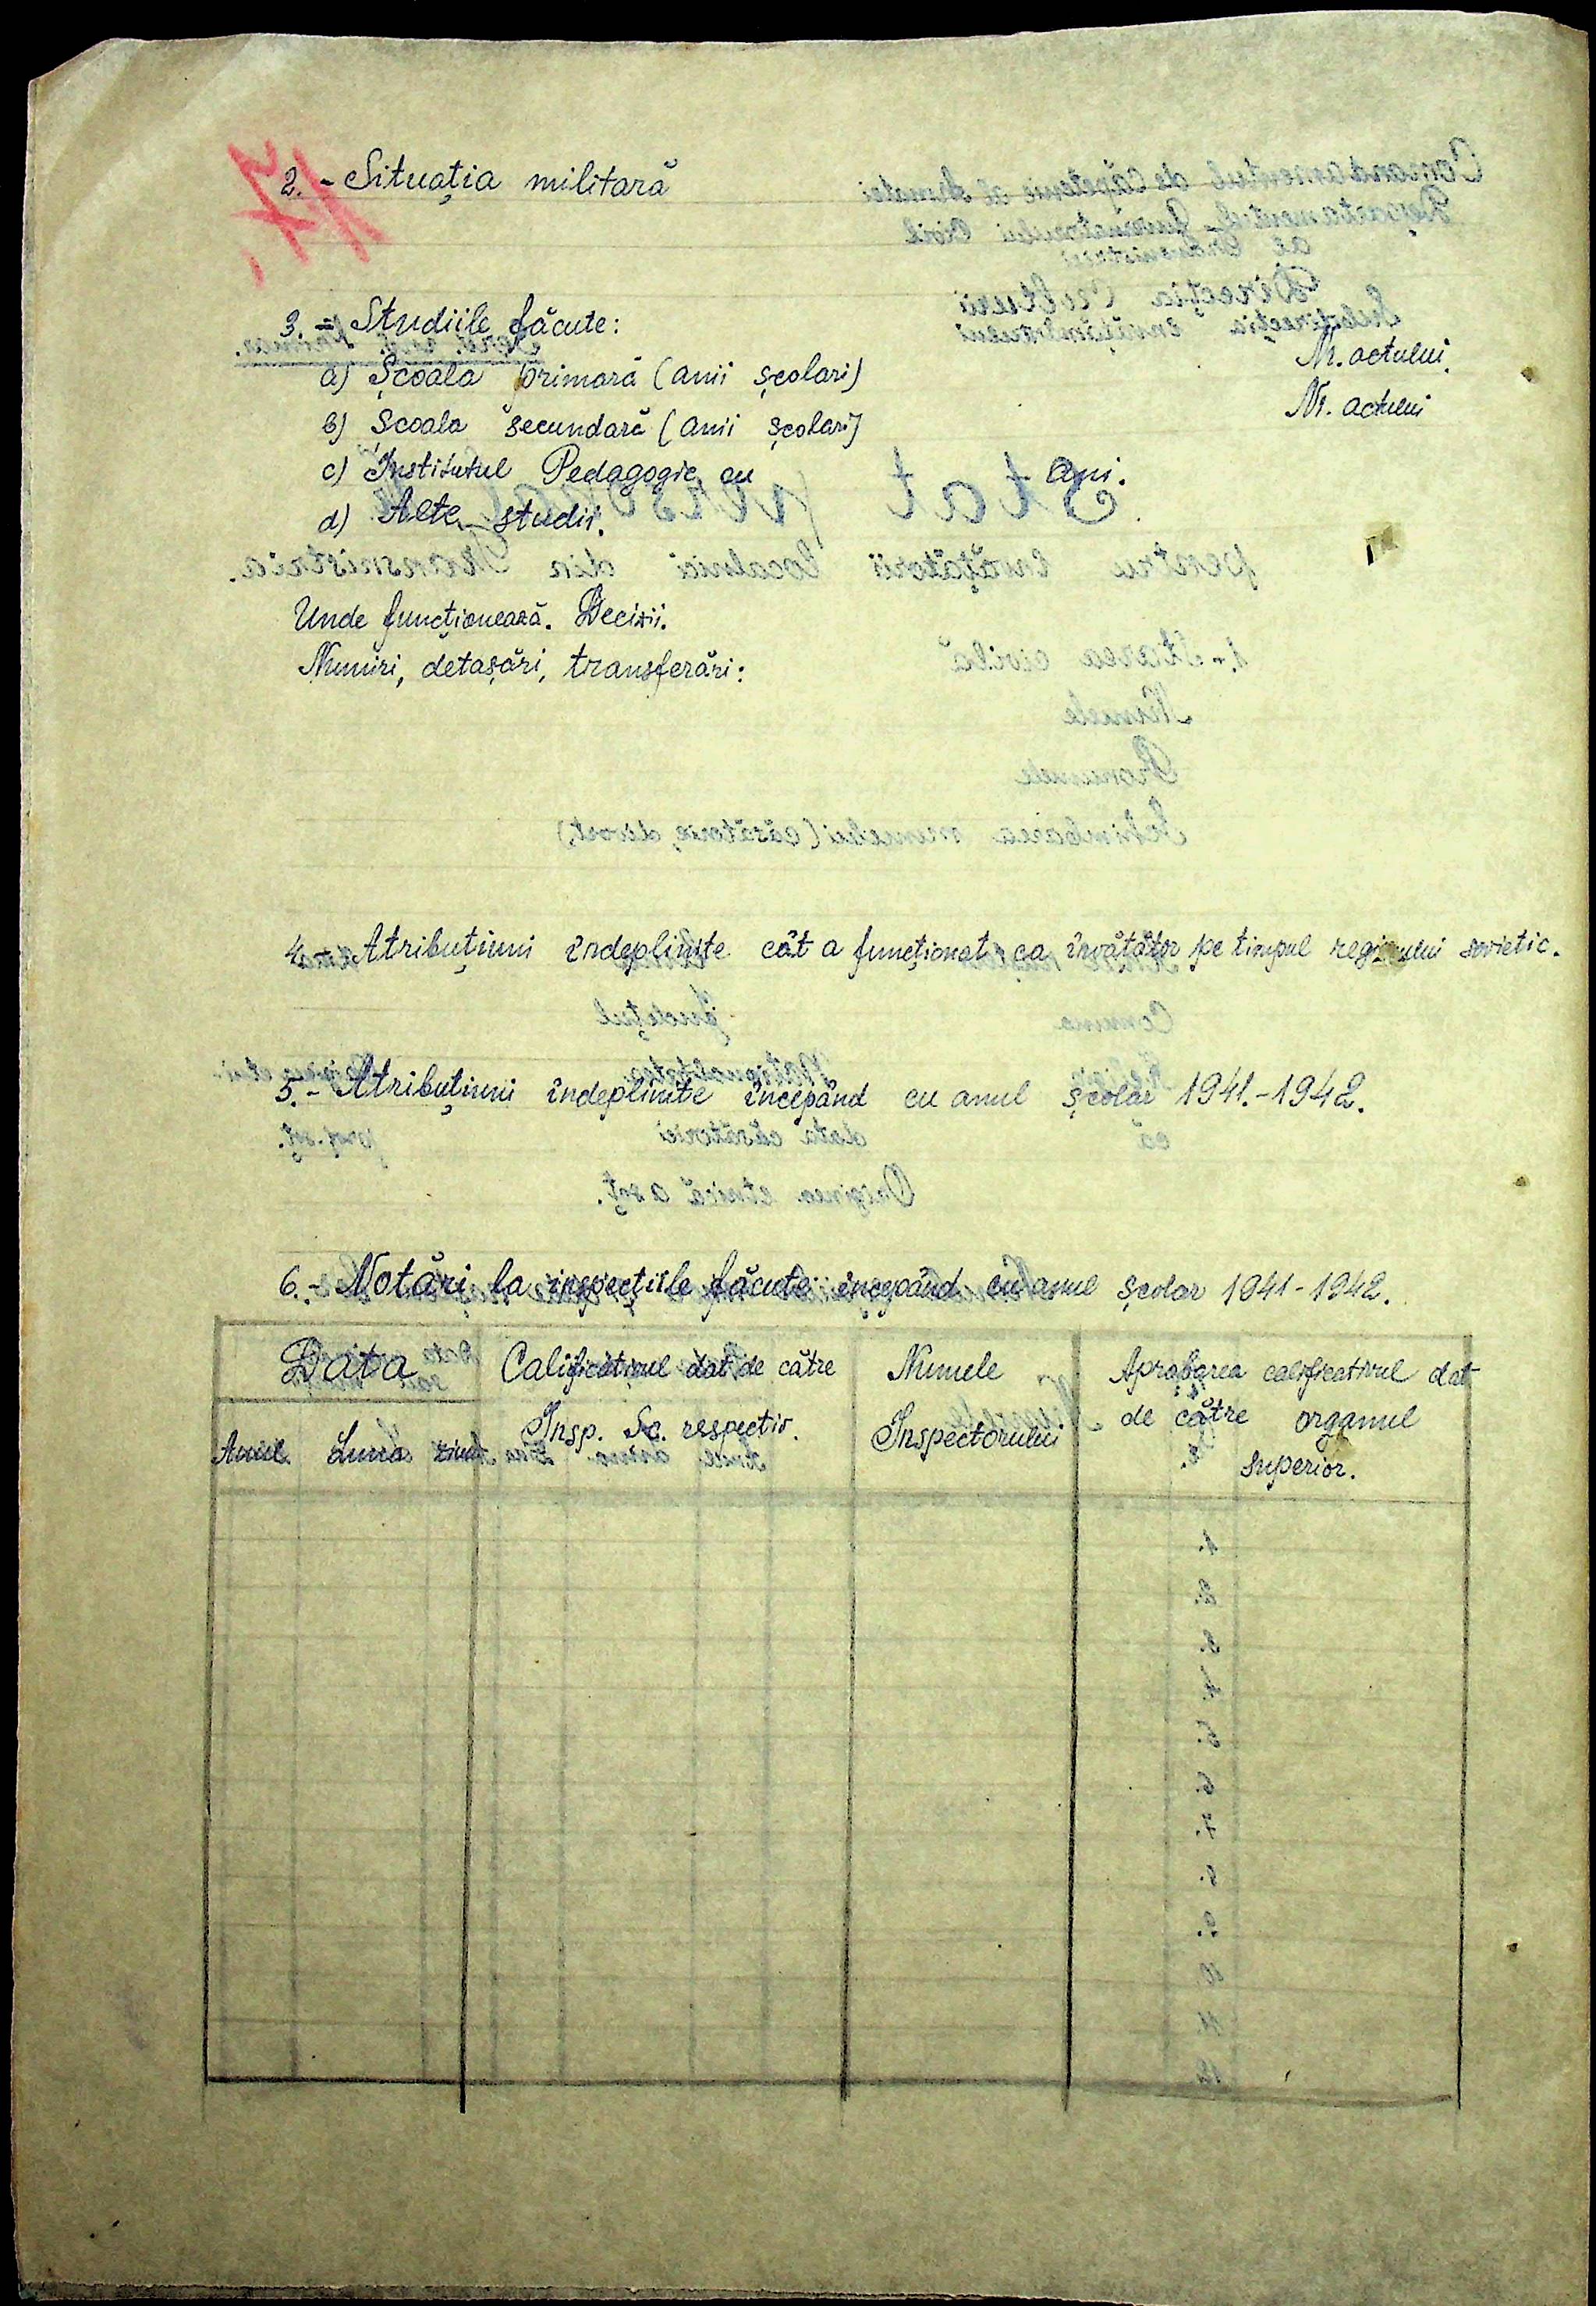 2. - Situația militară
3. - Studiile făcute:
a) Școala primară (anii școlari) Nr. actului.
b) Școala secundară (anii școlari) Nr. actului
c) Institutul Pedagogic cu ani.
d) Alte studii.
Unde funcționează. Decizii.
Numiri, detașări, transferări:
4. - Atribuțiuni îndeplinite cât a funcționat ca învățător pe timpul regimului sovietic.
5. - Atribuțiuni îndeplinite începând cu anul școlar 1941.-1942.
6. - Notări la inspecțiile făcute începând cu anul școlar 1941-1942.
Data
Anul Luna ziua
Calificativul dat de către
Insp. Sc. respectiv.
Numele
Inspectorului
Aprobarea calificativul dat
de către organul
superior.